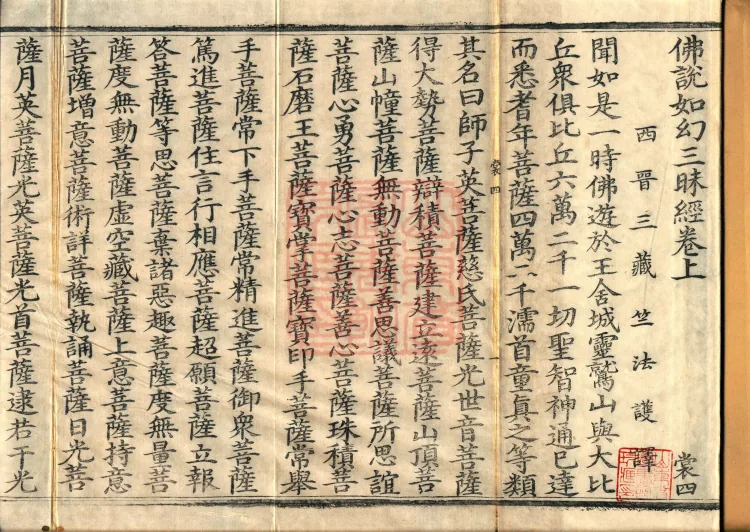 佛說如幻三昧經卷上
裳四
西晋三藏竺法護譯
聞如是一時佛遊於王舍城靈鷲山與大比
丘衆俱比丘六萬二千一切聖智神通已達
而悉耆年菩薩四萬二千濡首童真之等類
其名曰師子英菩薩慈氏菩薩光世音菩薩
得大勢菩薩辯積菩薩建立遠菩薩山頂菩
薩山幢菩薩無動菩薩善思議菩薩所思誼
菩薩心勇菩薩心志菩薩善心菩薩珠積菩
薩石磨王菩薩寶掌菩薩寶印手菩薩常舉
手菩薩常下手菩薩常精進菩薩御衆菩薩
篤進菩薩住言行相應菩薩超願菩薩立報
答菩薩等思菩薩棄諸惡趣菩薩度無量菩
薩度無動菩薩虛空藏菩薩上意菩薩持意
菩薩增意菩薩術詳菩薩執誦菩薩日光菩
薩月英菩薩光英菩薩光首菩薩逮若干光
裳四
一